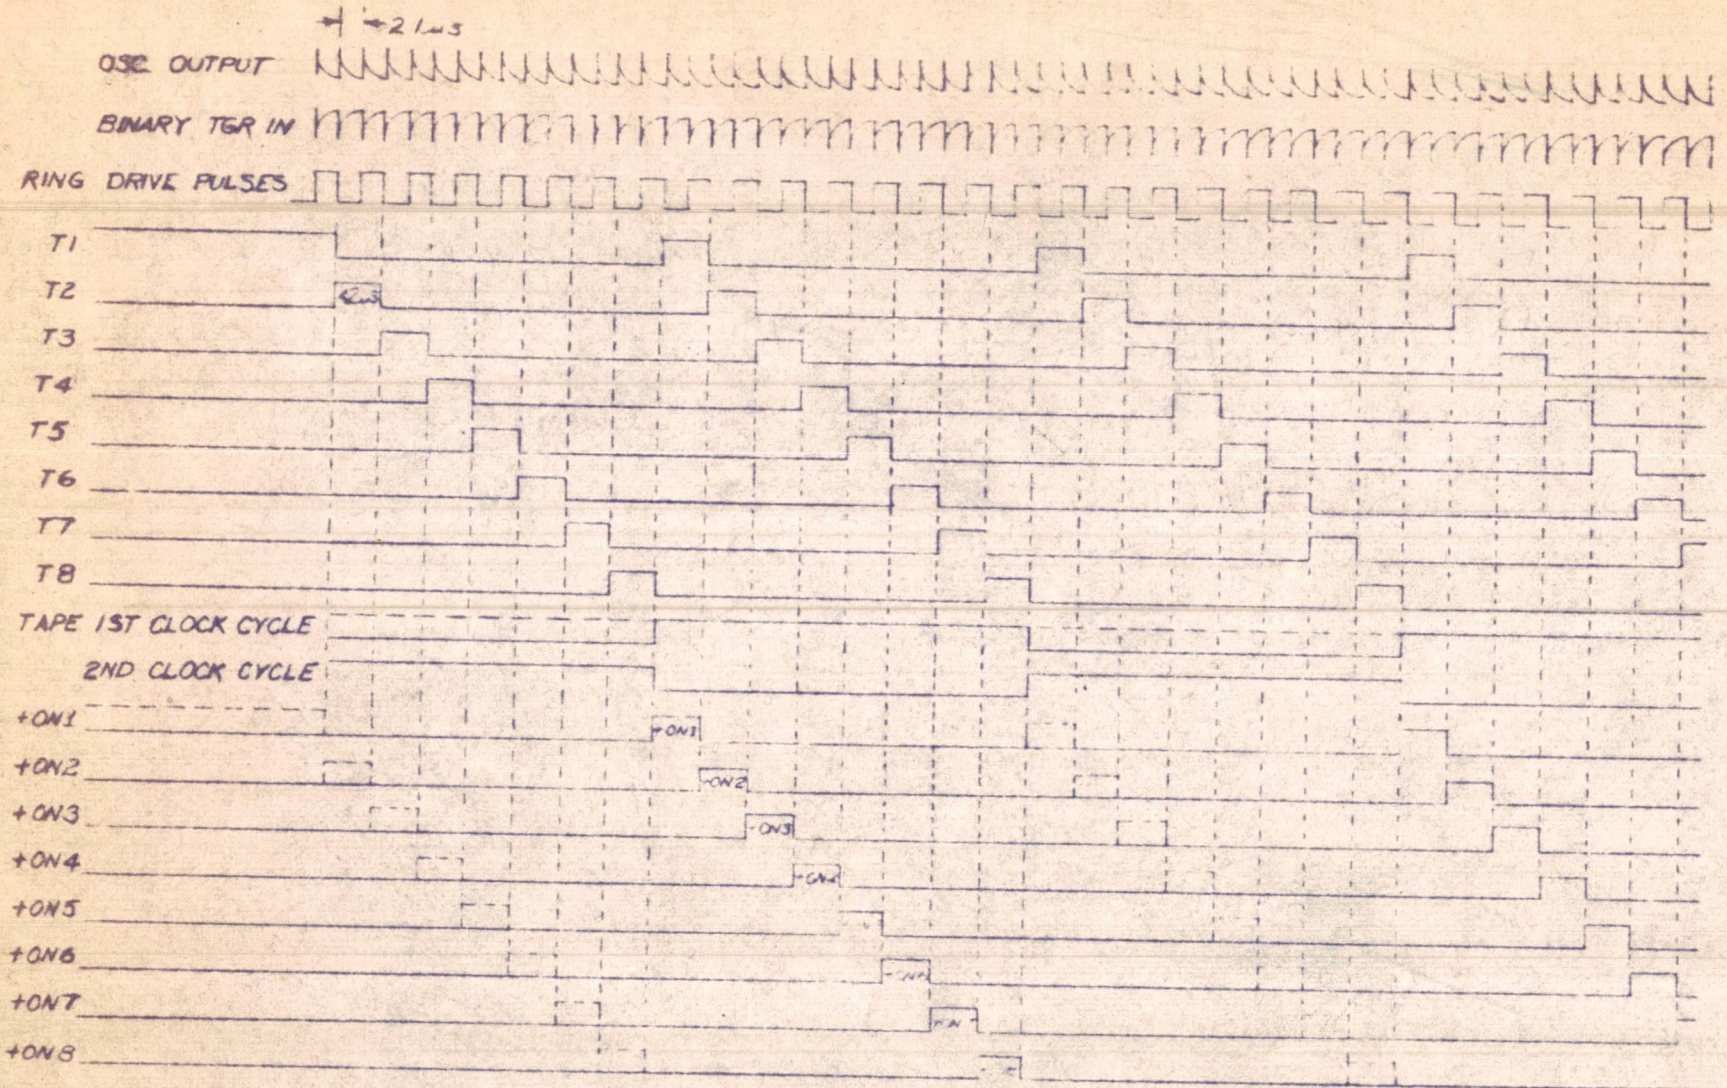 21μs
OSC OUTPUT
BINARY TGR IN
RING DRIVE PULSES
T1
T2
T3
T4
T5
T6
T7
T8
TAPE 1ST CLOCK CYCLE
2ND CLOCK CYCLE
+ON1 +ON1
+ON2 +ON2
+ON3 +ON3
+ON4
+ON5
+ON6
+ON7
+ON8